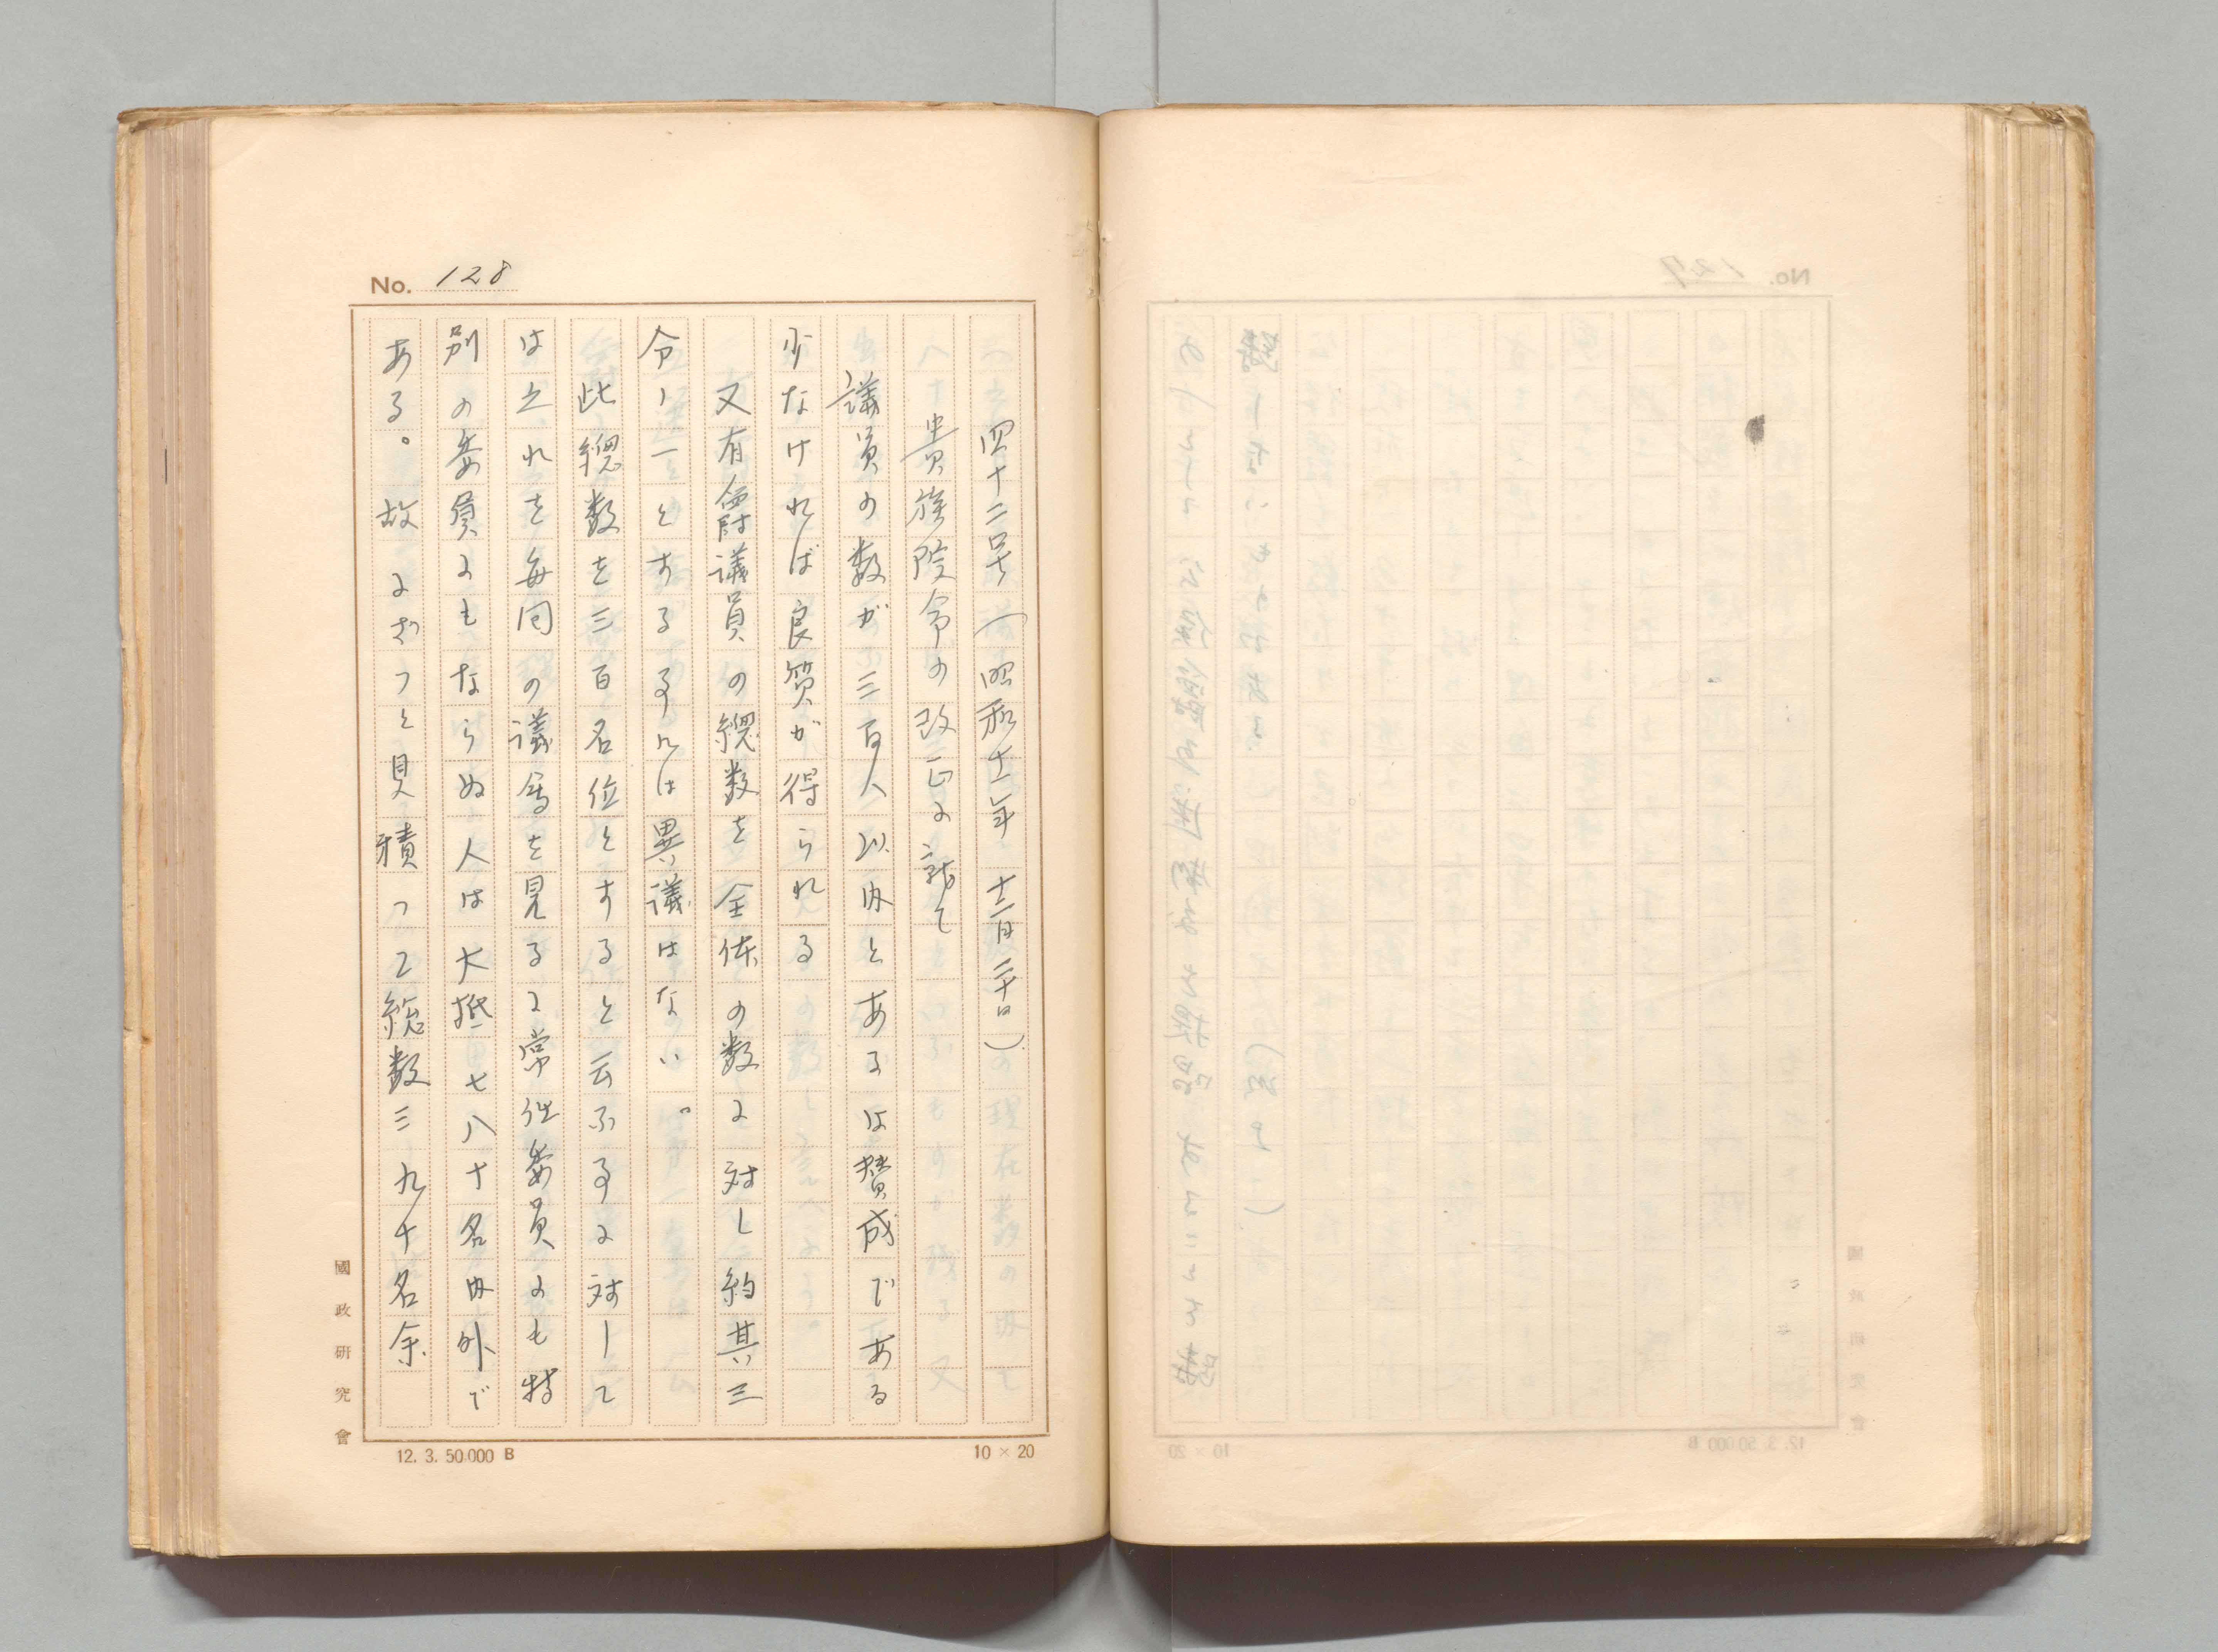 No. 128
四十二号(昭和十一年十二月二十日)
貴族院令の改正に就て
議員の数が三百人以内とあるは賛成である
少なければ良質が得られる
又有爵議員の総数を全体の数に対し約其三
分ノ一とする事には異議はない。
此總数を三百名位とすると云ふ事に対して
は之れを毎回の議会を見るに常任委員にも特
別の委員にもならぬ人は大抵七八十名内外で
ある。故にざっと見積って総数三九十名余
國政研究會
12. 3. 50.000 B
10 × 20